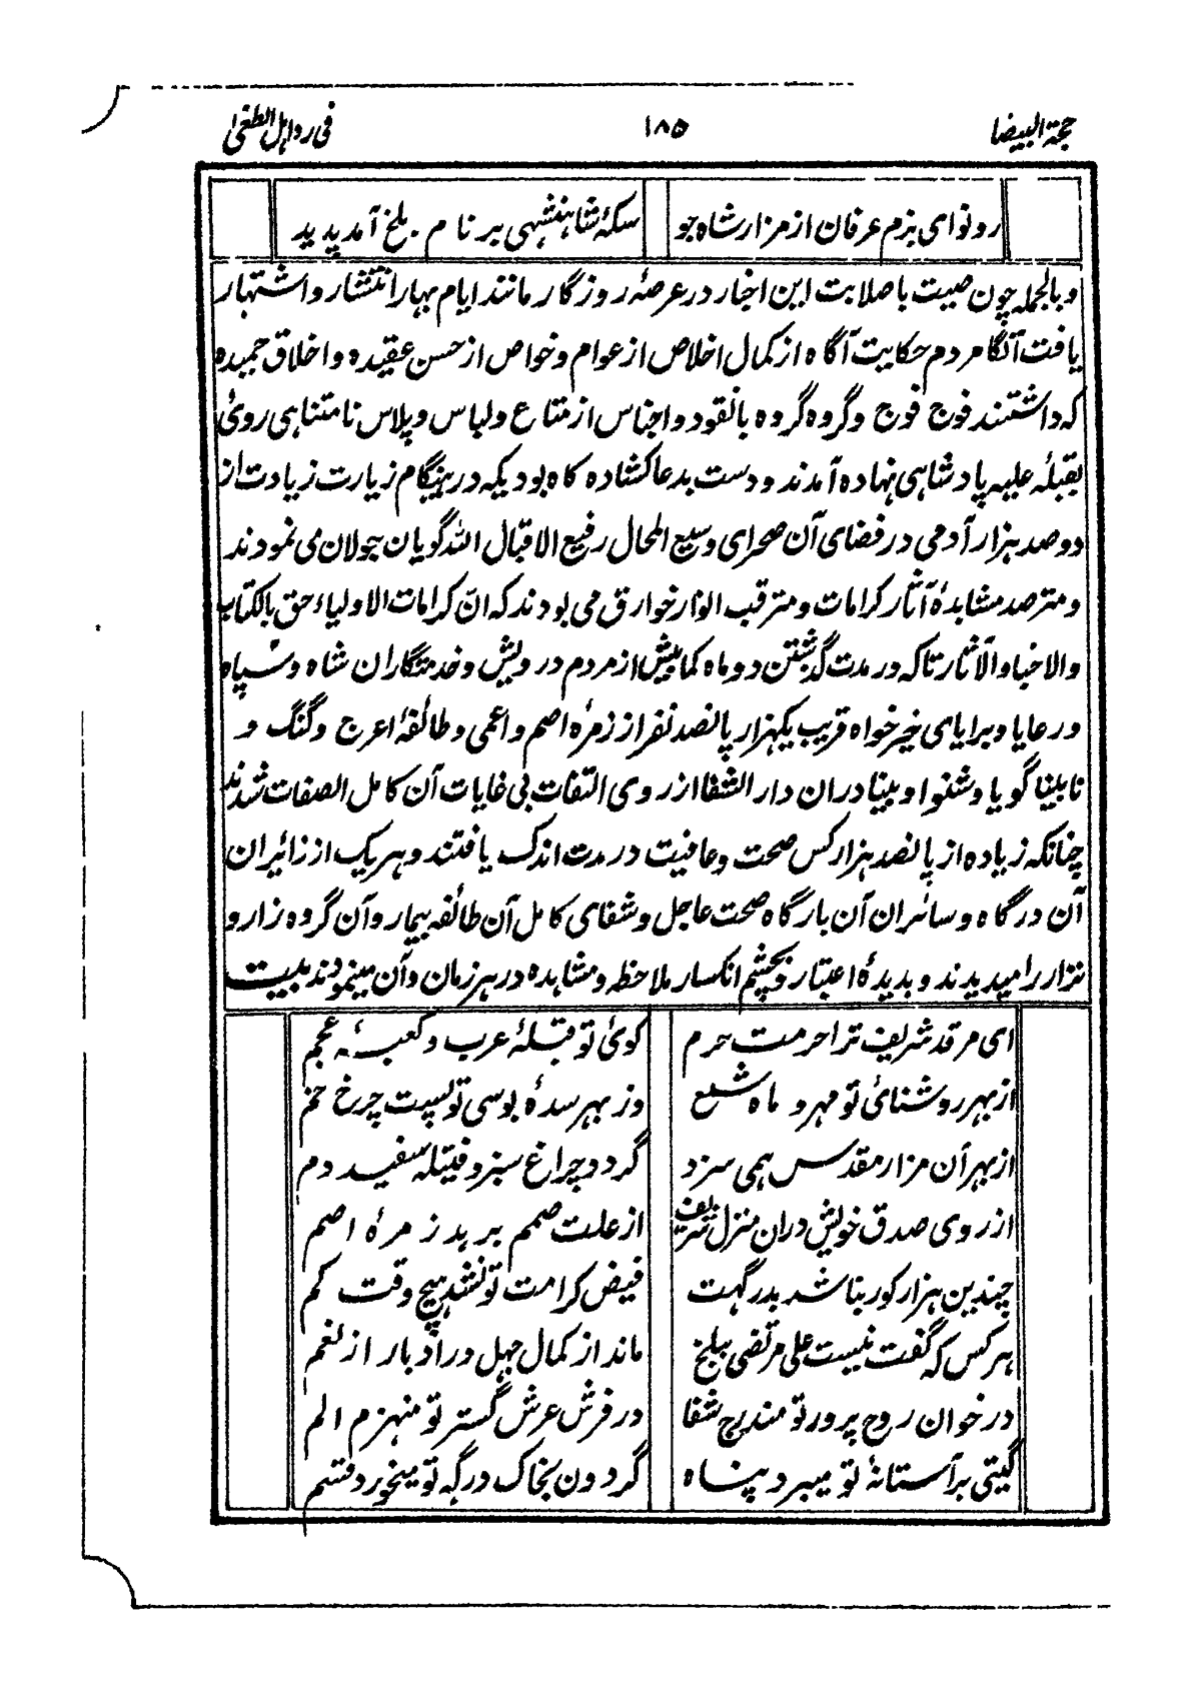 حجة البیضا ۱۸۵ فی رد اہل الطغیٰ
رو نوای بزم عرفان از مزار شاہ جو سکۂ شاہنشہی بر نام بلخ آمد پدید
و بالجملہ چون صیت باصلابت این اخبار در عرصۂ روزگار مانند ایام بہار انتشار و اشتہار
یافت آنگاہ مردم حکایت آگاہ از کمال اخلاص از عوام و خواص از حسن عقیدہ و اخلاق حمیدہ
کہ داشتند فوج فوج و گروہ گروہ بانقود و اجناس از متاع و لباس و پلاس نامتناہی روئ
بقبلۂ علیہ پادشاہی نہادہ آمدند و دست بدعا کشادہ گاہ بودیکہ در ہنگام زیارت زیادت از
دو صد ہزار آدمی در فضای آن صحرای وسیع المحال رفیع الاقبال اللہ گویان جولان می نمودند
و مترصد مشاہدۂ آثار کرامات و مترقب انوار خوارق می بودند کہ ان کرامات الاولیاء حق بالکتاب
والاخبار والآثار تا کہ در مدت گذشتن دو ماہ کما بیش از مردم درویش و خدمتگاران شاہ و سپاہ
و رعایا و برایای خیر خواہ قریب یکہزار پانصد نفر از زمرہ اصم و اعمی و طائفۂ اعرج و گنگ و
نابینا گویا و شنوا و بینا دران دار الشفا از روی التفات بی غایات آن کامل الصفات شدند
چنانکہ زیادہ از پانصد ہزار کس صحت و عافیت در مدت اندک یافتند و ہر یک از زائران
آن درگاہ و سائران آن بارگاہ صحت عاجل و شفای کامل آن طائفہ بیمار و آن گروہ زار و
نزار را میدیدند و بدیدۂ اعتبار و بچشم انکسار ملاحظہ و مشاہدہ در ہر زمان و آن مینمودند بیت
ای مرقد شریف ترا حرمت حرم کوئ تو قبلۂ عرب و کعبۂ عجم
از بہر روشنائ تو مہر و ماہ شمع وز بہر سدۂ بوسی تو پست چرخ خم
از بہر آن مزار مقدس ہمی سزد گردد چراغ سبز و فتیلہ سفید دم
از روی صدق خویش دران منزل شریف از علت صمم برہد زمرۂ اصم
چندین ہزار کور بنا شد بدرگہت فیض کرامت تو نشد ہیچ وقت کم
ہر کس کہ گفت نیست علی مرتضی ببلخ ماند از کمال جہل در ادبار از نغم
در خوان روح پرور تو مندرج شفا در فرش عرش گستر تو منہزم الم
گیتی بر آستانۂ تو میبرد پناہ گردون بخاک درگہ تو میخورد قسم